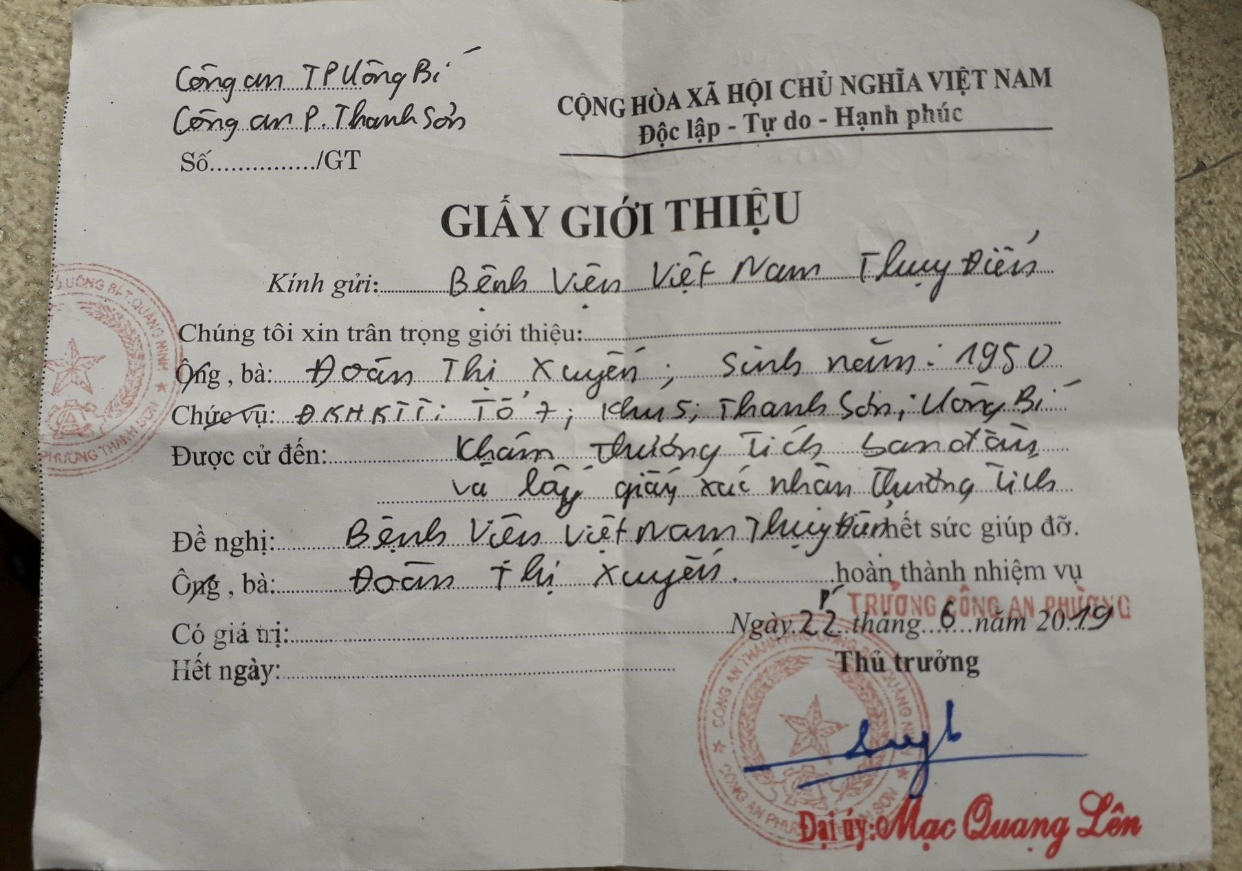 Công an TP Uông Bí
Công an P. Thanh Sơn
Số............../GT
CỘNG HÒA XÃ HỘI CHỦ NGHĨA VIỆT NAM
Độc lập - Tự do - Hạnh phúc
GIẤY GIỚI THIỆU
Kính gửi: Bệnh Viện Việt Nam Thụy Điển
Chúng tôi xin trân trọng giới thiệu:
Ông , bà: Đoàn Thị Xuyến ; Sinh năm: 1950
Chức vụ: ĐKHKTT: Tổ 7; Khu 5; Thanh Sơn; Uông Bí
Được cử đến: Khám thương tích ban đầu
và lấy giấy xác nhận thương tích
Đề nghị: Bệnh Viện Việt Nam Thụy Điển hết sức giúp đỡ.
Ông , bà: Đoàn Thị Xuyến. hoàn thành nhiệm vụ
Có giá trị: Ngày 22 tháng 6 năm 2019
Hết ngày:
TRƯỞNG CÔNG AN PHƯỜNG
Thủ trưởng
Đại úy: Mạc Quang Lên